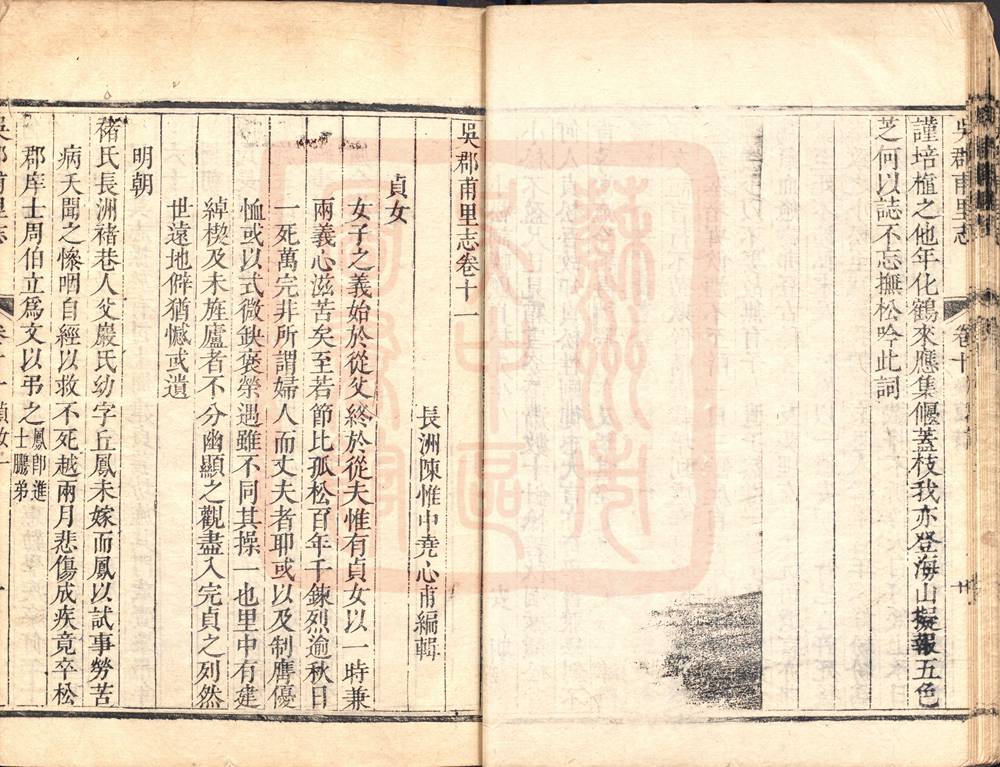 吳郡甫里志
卷十
謹培植之他年化鶴來應集偃蓋枝我亦登海山擬報五色
芝何以誌不忘撫松吟此詞
吳郡甫里志卷十一
長洲陳惟中堯心甫編輯
貞女
女子之義始於從父終於從夫惟有貞女以一時兼
兩義心滋苦矣至若節比孤松百年千鍊烈逾秋日
一死萬完非所謂婦人而丈夫者耶或以及制膺優
恤或以式微缺褒榮遇雖不同其操一也里中有建
綽楔及未旌廬者不分幽顯之觀盡入完貞之列然
世遠地僻猶憾或遺
明朝
褚氏長洲褚巷人父嚴氏幼字丘鳳未嫁而鳳以試事勞苦
病夭聞之慘咽自經以救不死越兩月悲傷成疾竟卒松
郡庠士周伯立爲文以弔之鳳卽進士鵬弟
吳郡甫里志
卷十一 貞女